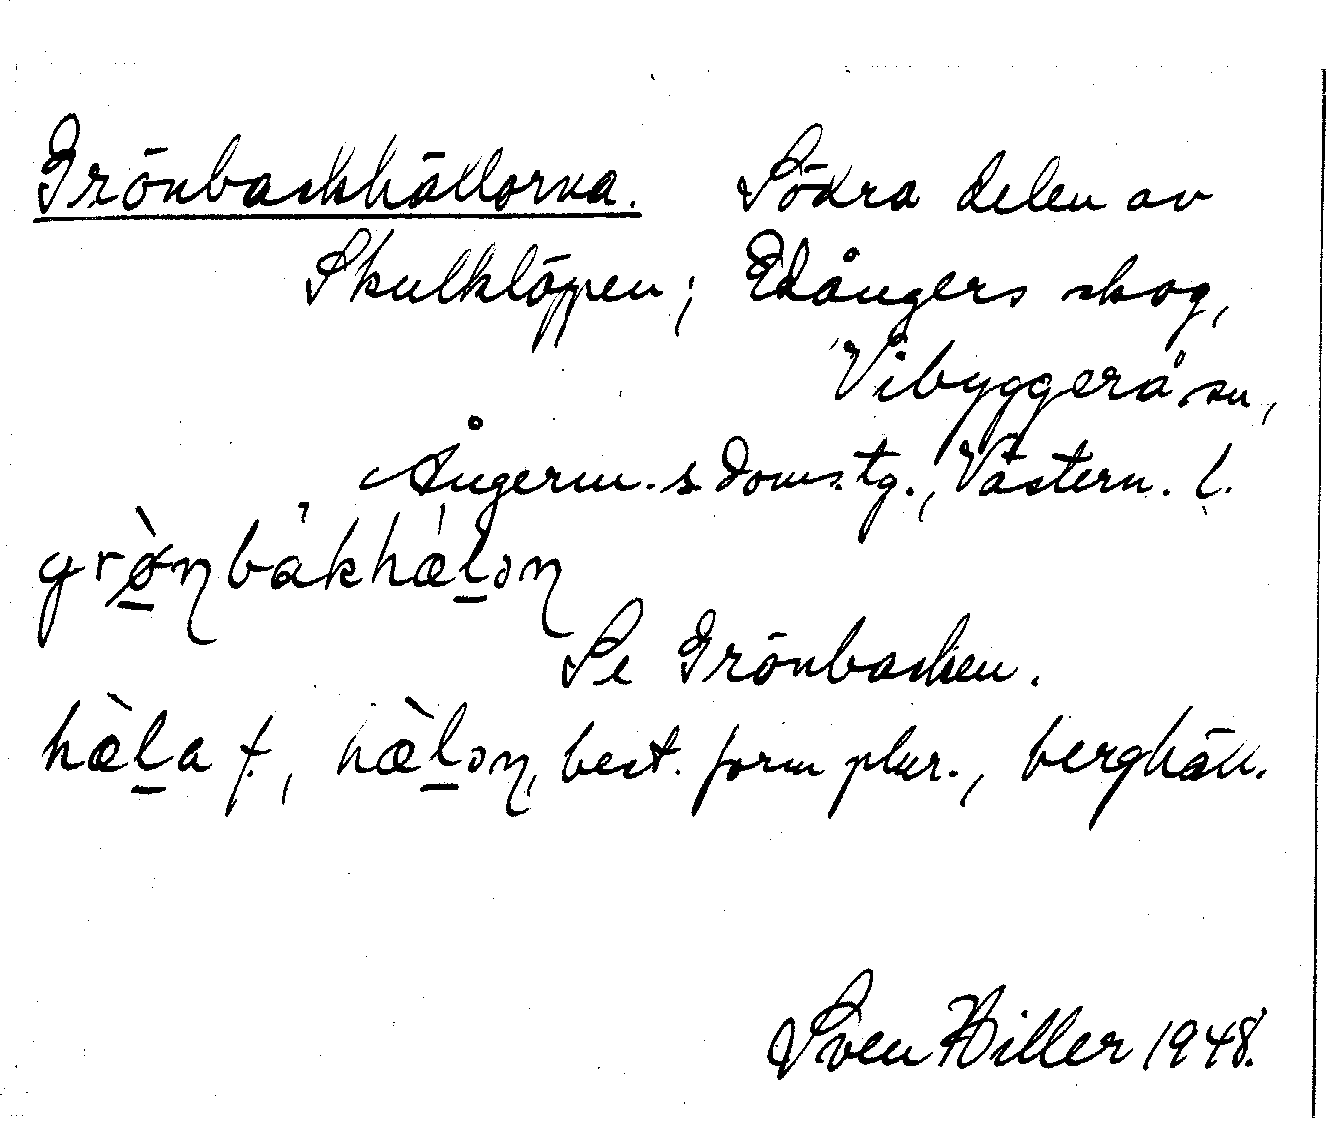 Grönbackhällorna. Södra delen av
Skulklöppen; Edångers skog,
Vibyggerå sn,
Ångerm. s. doms. tg., Västern. l.
grø̠̀ɳbàkhæ̀l̠ɔɳ
Se Grönbacken.
hæ̀l̠a f., hæ̀l̠ɔɳ, best. form plur., berghäll.
Sven Hiller 1948.